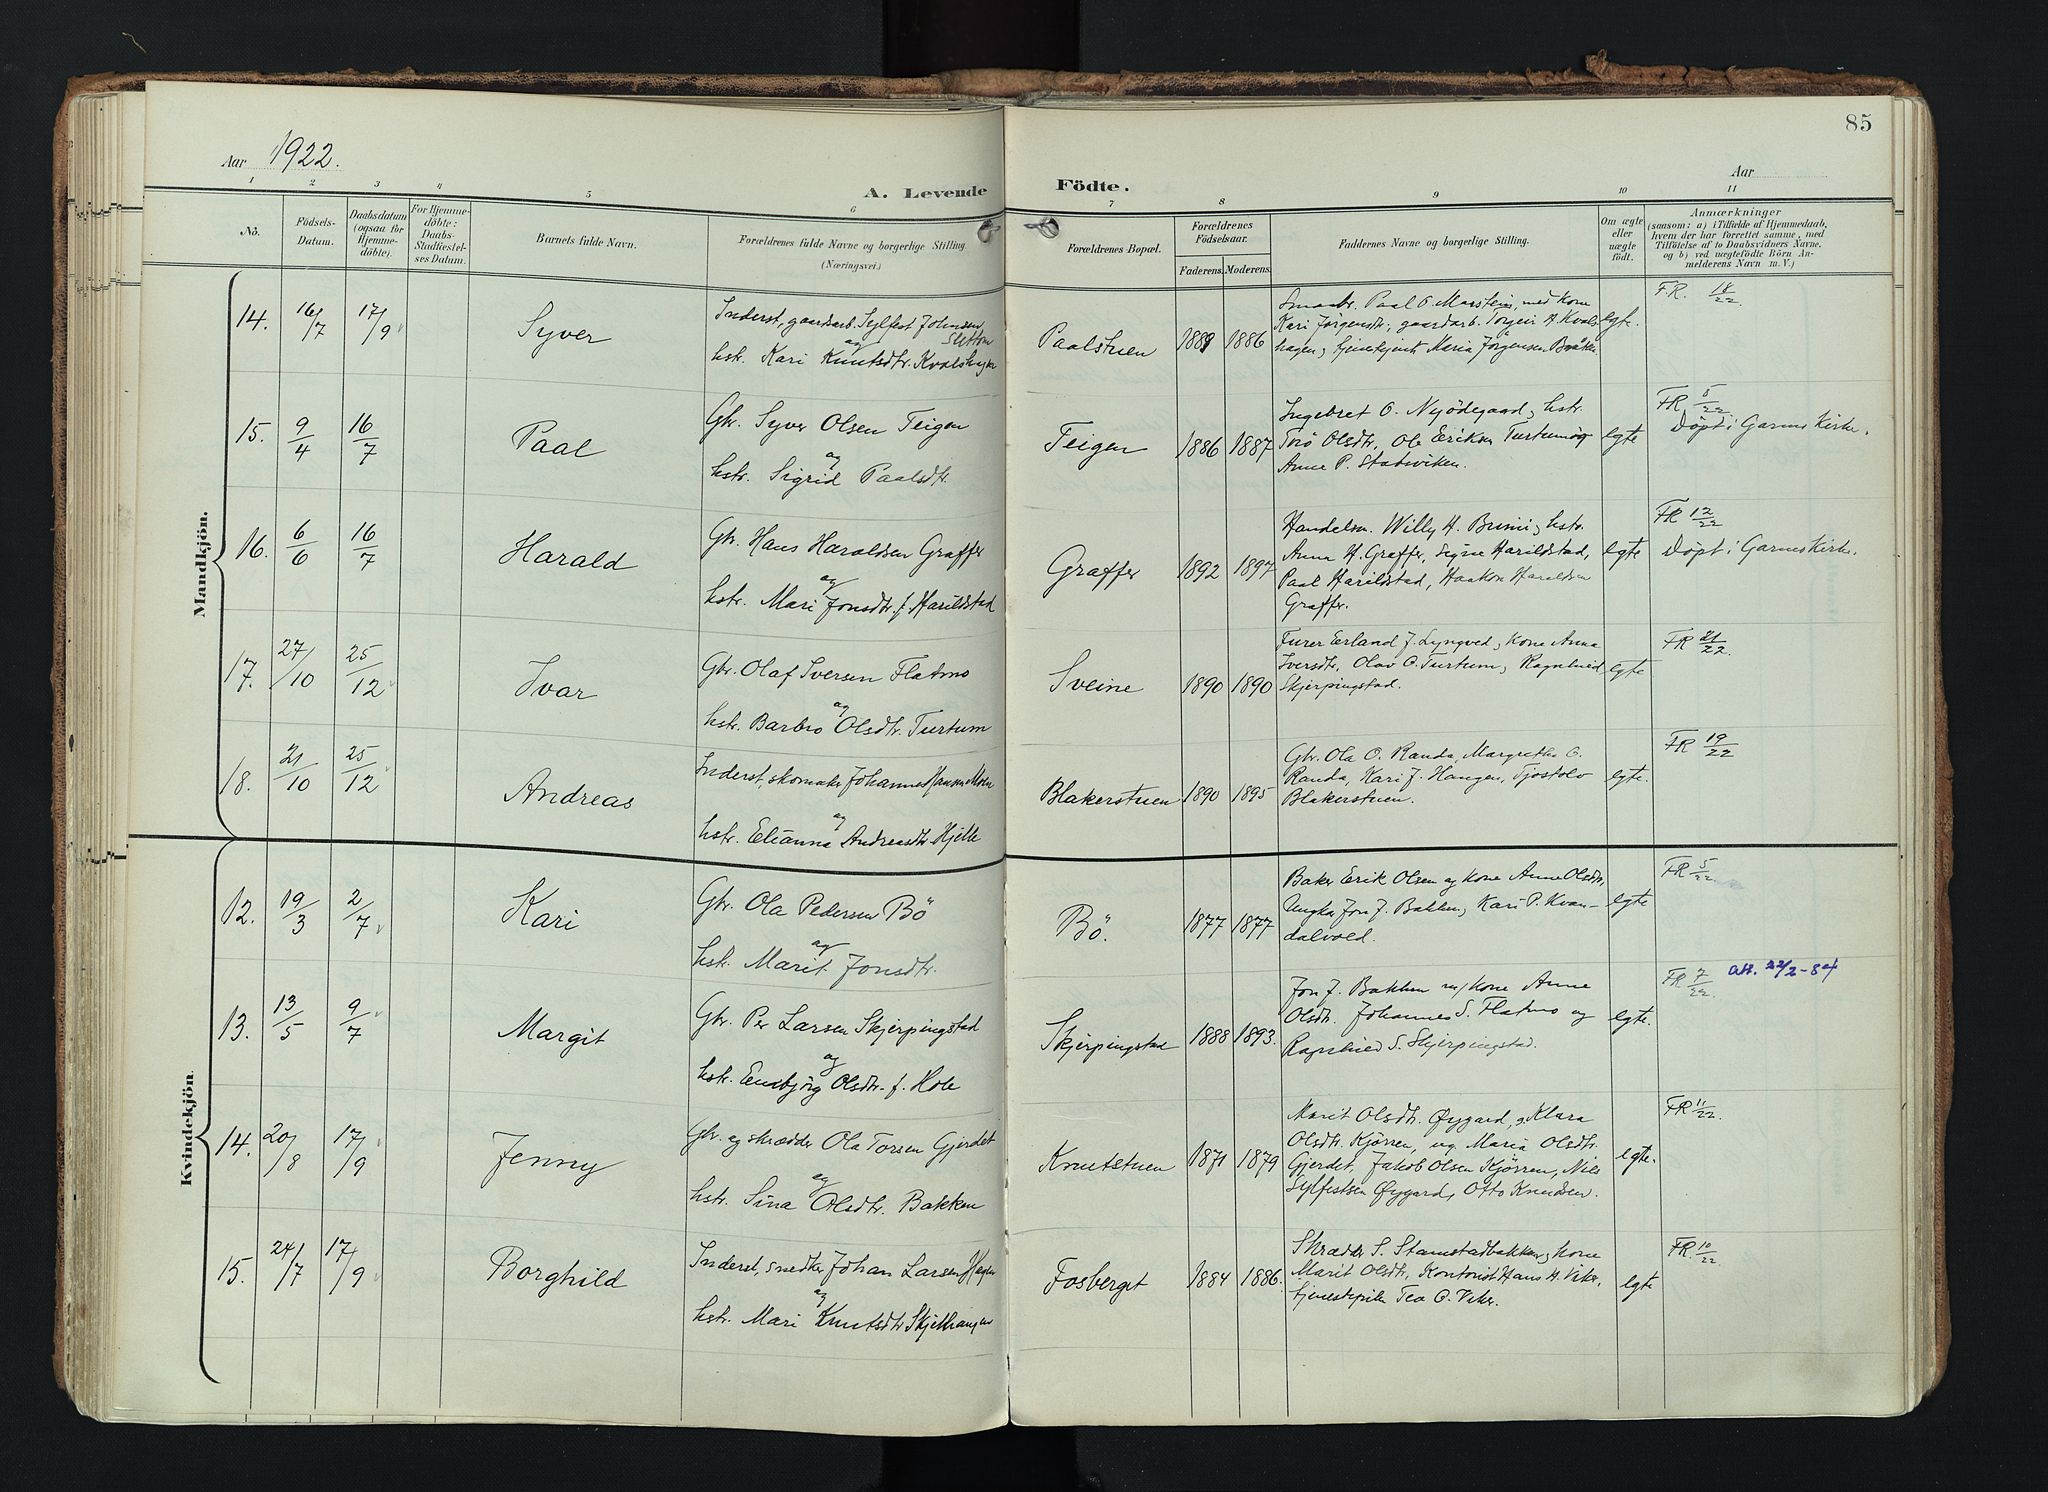 85
Aar 1922.
A. Levende Födte.
Aar
1 2 3 4 5 6 7 8 9 10 11
Nö.
Födsels-Datum.
Daabsdatum (ogsaa for Hjemme-döbte).
For Hjemme-döbte: Daabs-Stadfæstel-ses Datum.
Barnets fulde Navn.
Forældrenes fulde Navne og borgerlige Stilling.
(Næringsvei.)
Forældrenes Bopæl.
Forældrenes Födselsaar.
Faderens. Moderens.
Faddernes Navne og borgerlige Stilling.
Om ægte eller uægte födt.
Anmærkninger
(saasom: a) i Tilfælde af Hjemmedaab,
hvem der har forrettet samme, med
Tilföielse af to Daabsvidners Navne,
og b) ved uægtefödte Börn An-
melderens Navn m. V.)
Mandkjön.
14. 16/7 17/9 Syver
Inderst, gaardarb. Sylfest Johnsen Sletten
og
hstr. Kari Knutsdtr. Kvalshagen
Paalstuen 1889 1886
Smaabr. Paal O. Marstein, med Kone
Kari Jørgensdtr., gaardarb. Torgeir H. Kvals-
hagen, tjenestejente Maria Jörgensen
egte.
FR. 18/22.
15. 9/4 16/7 Paal
Gbr. Syver Olsen Teigen
og
hstr. Sigrid Paalsdtr.
Teigen 1886 1887
Ingebret O. Nyödegaard, hstr.
Toro Olsdtr, Ole Eriksen Turtum og
Anne P. Stabsviken.
egte
FR 8/22
Döpt i Garmo Kirke.
16. 6/6 16/7 Harald
Gbr. Hans Haraldsen Graffer
og
hstr. Mari Jonsdtr. f. Harildstad
Graffer 1892 1897
Handelsm. Willy H. Brimi, hstr.
Anna H. Graffer, Signe Harildstad,
Paal Harildstad, Haakon Haraldsen
Graffer.
egte
FR 12/22
Döpt i Garmo Kirke.
17. 27/10 25/12 Ivar
Gbr. Olaf Iversen Flatmo
og
hstr. Barbro Olsdtr. Turtum
Sveine 1890 1890
Furer Erland J. Lyngved, Kone Anna
Iversdtr. Olav O. Turtum, Ragnhild
Skjerpingstad.
egte
FR 21/22.
18. 21/10 25/12 Andreas
Inderst, skomaker Johannes Hansen Moen
og
hstr. Elianna Andreasdtr Hjelle
Blakerstuen 1890 1895
Gbr. Ola O. Randa, Margrethe O.
Randa, Kari J. Haugen, Tjostolv
Blakerstuen.
egte.
FR 19/22
Kvindekjön.
12. 19/3 2/7 Kari
Gbr. Ola Pedersen Bö
og
hstr. Marit Jonsdtr.
Bö. 1877 1877
Baker Erik Olsen og Kone Anne Olsdtr,
Ungkar Jon J. Bakken, Kari P. Kvan-
dalvold.
egte
FR 5/22.
13. 13/5 9/7 Margit
Gbr. Per Larsen Skjerpingstad
og
hstr. Embjörg Olsdtr. f. Hole
Skjerpingstad 1888 1893.
Jon J. Bakken m/ Kone Anne
Olsdtr. Johannes S. Flatmo og
Ragnhild S. Skjerpingstad.
egte.
FR 7/22. att. 22/2-84
14. 20/8 17/9 Jenny
Gbr. og skrædder Ola Torsen Gjerdet
og
hstr. Sina Olsdtr. Bakken
Knutstuen 1871 1879
Marit Olsdtr. Øygard, Klara
Olsdtr. Kjörren, og Maria Olsdtr.
Gjerdet, Jakob Olsen Kjörren, Nils
Sylfestsen Øygard, Otto Knudsen.
egte.
FR 11/22.
15. 24/7 17/9 Borghild
Inderst, snedker Johan Larsen Hagen
og
hstr. Mari Knutsdtr Skjelhaugen
Fosberget 1884 1886.
Skrædder S. Stamstadbakken, Kone
Marit Olsdtr, Kontorist Hans H. Viker,
tjenestepike Tea O. Viker.
egte
FR. 10/22